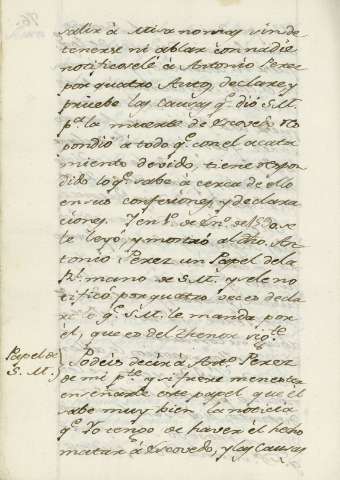 salir à Misa no mas, sin de
tenerse ni ablar con nadie
notificosele à Antonio Perez
por quatro Autos, declare, y
pruebe las causas q.e dió S.M.
p.a la muerte de Escovedo. Res
pondió à todo q.e con el acata
miento devido, tiene respon
dido lo q.e sabe à cerca de ello
en sus confesiones, y declara
ciones. Y en 1.o de En.o de 1590 se
le leyó, y mostró al dho. An
tonio Perez un Papel de la
R.l mano de S.M. y se le no
tificó por quatro veces decla
re lo q.e S.M. le manda por
él, que es del thenor sig.te
Papel de
S. M.
Podeis decir à Ant.o Perez
de mi p.te y si fuere menester
enseñarle este papel que él
sabe muy bien la noticia
q.e Yo tengo de haver él hecho
matar à Escovedo, y las causas